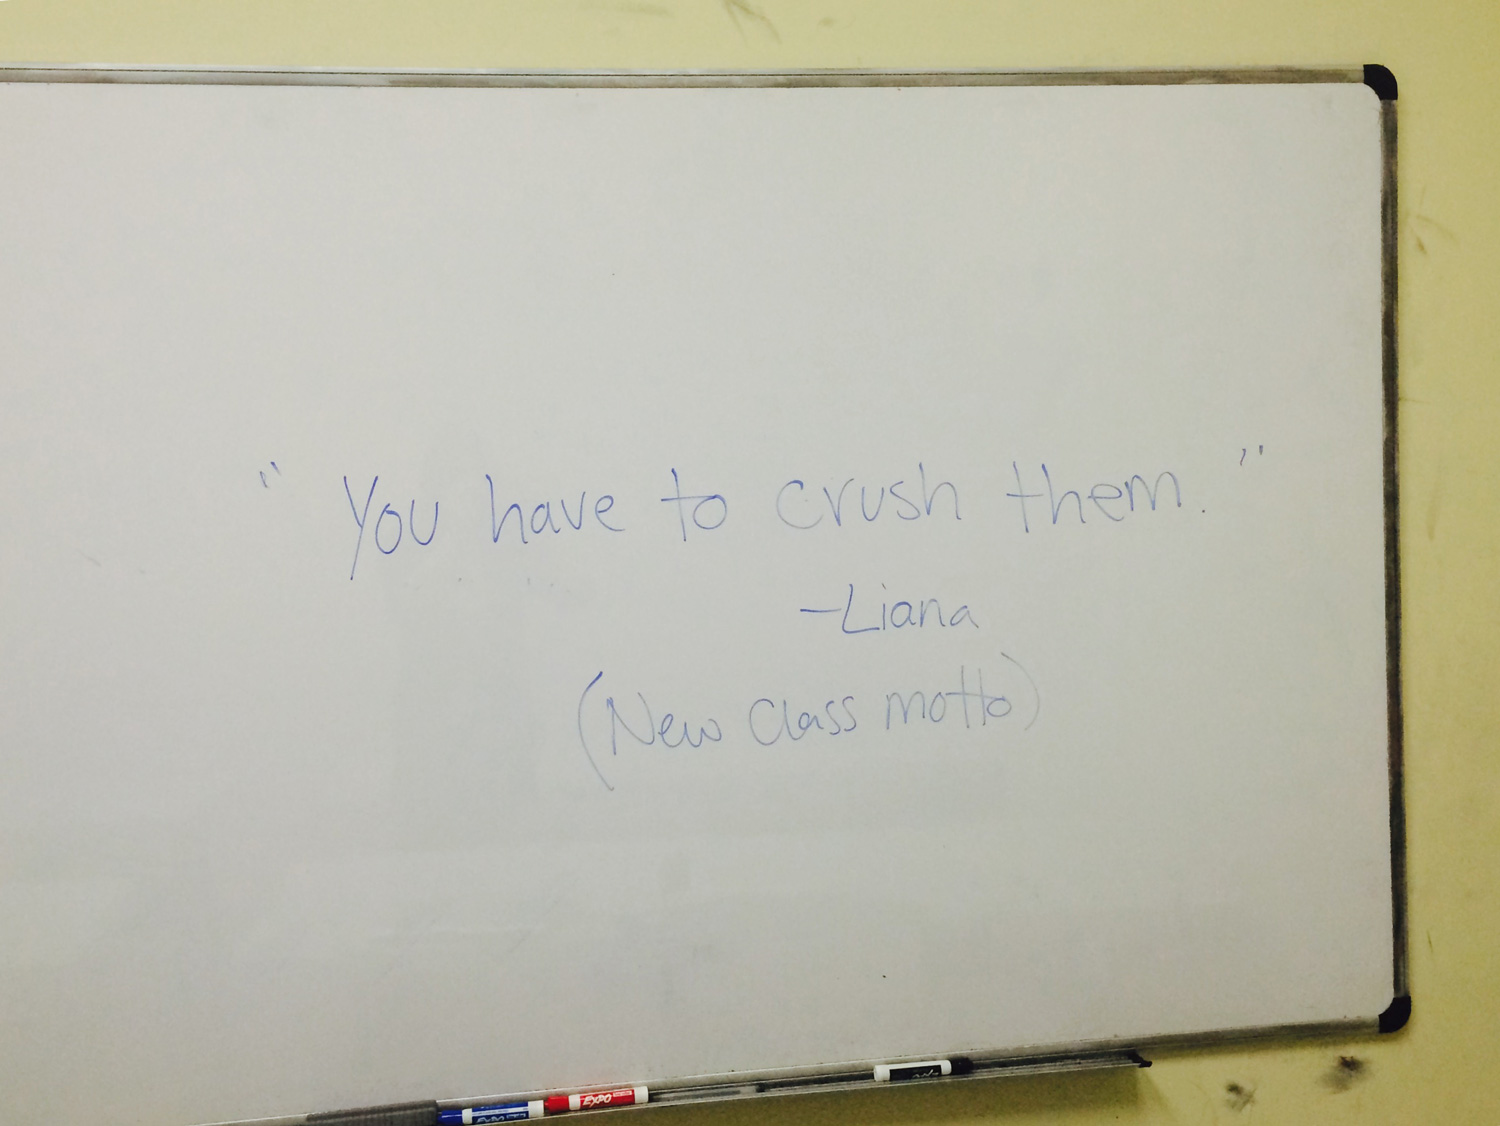 "You have to crush them."
-Liana
(New class motto)
EXPO